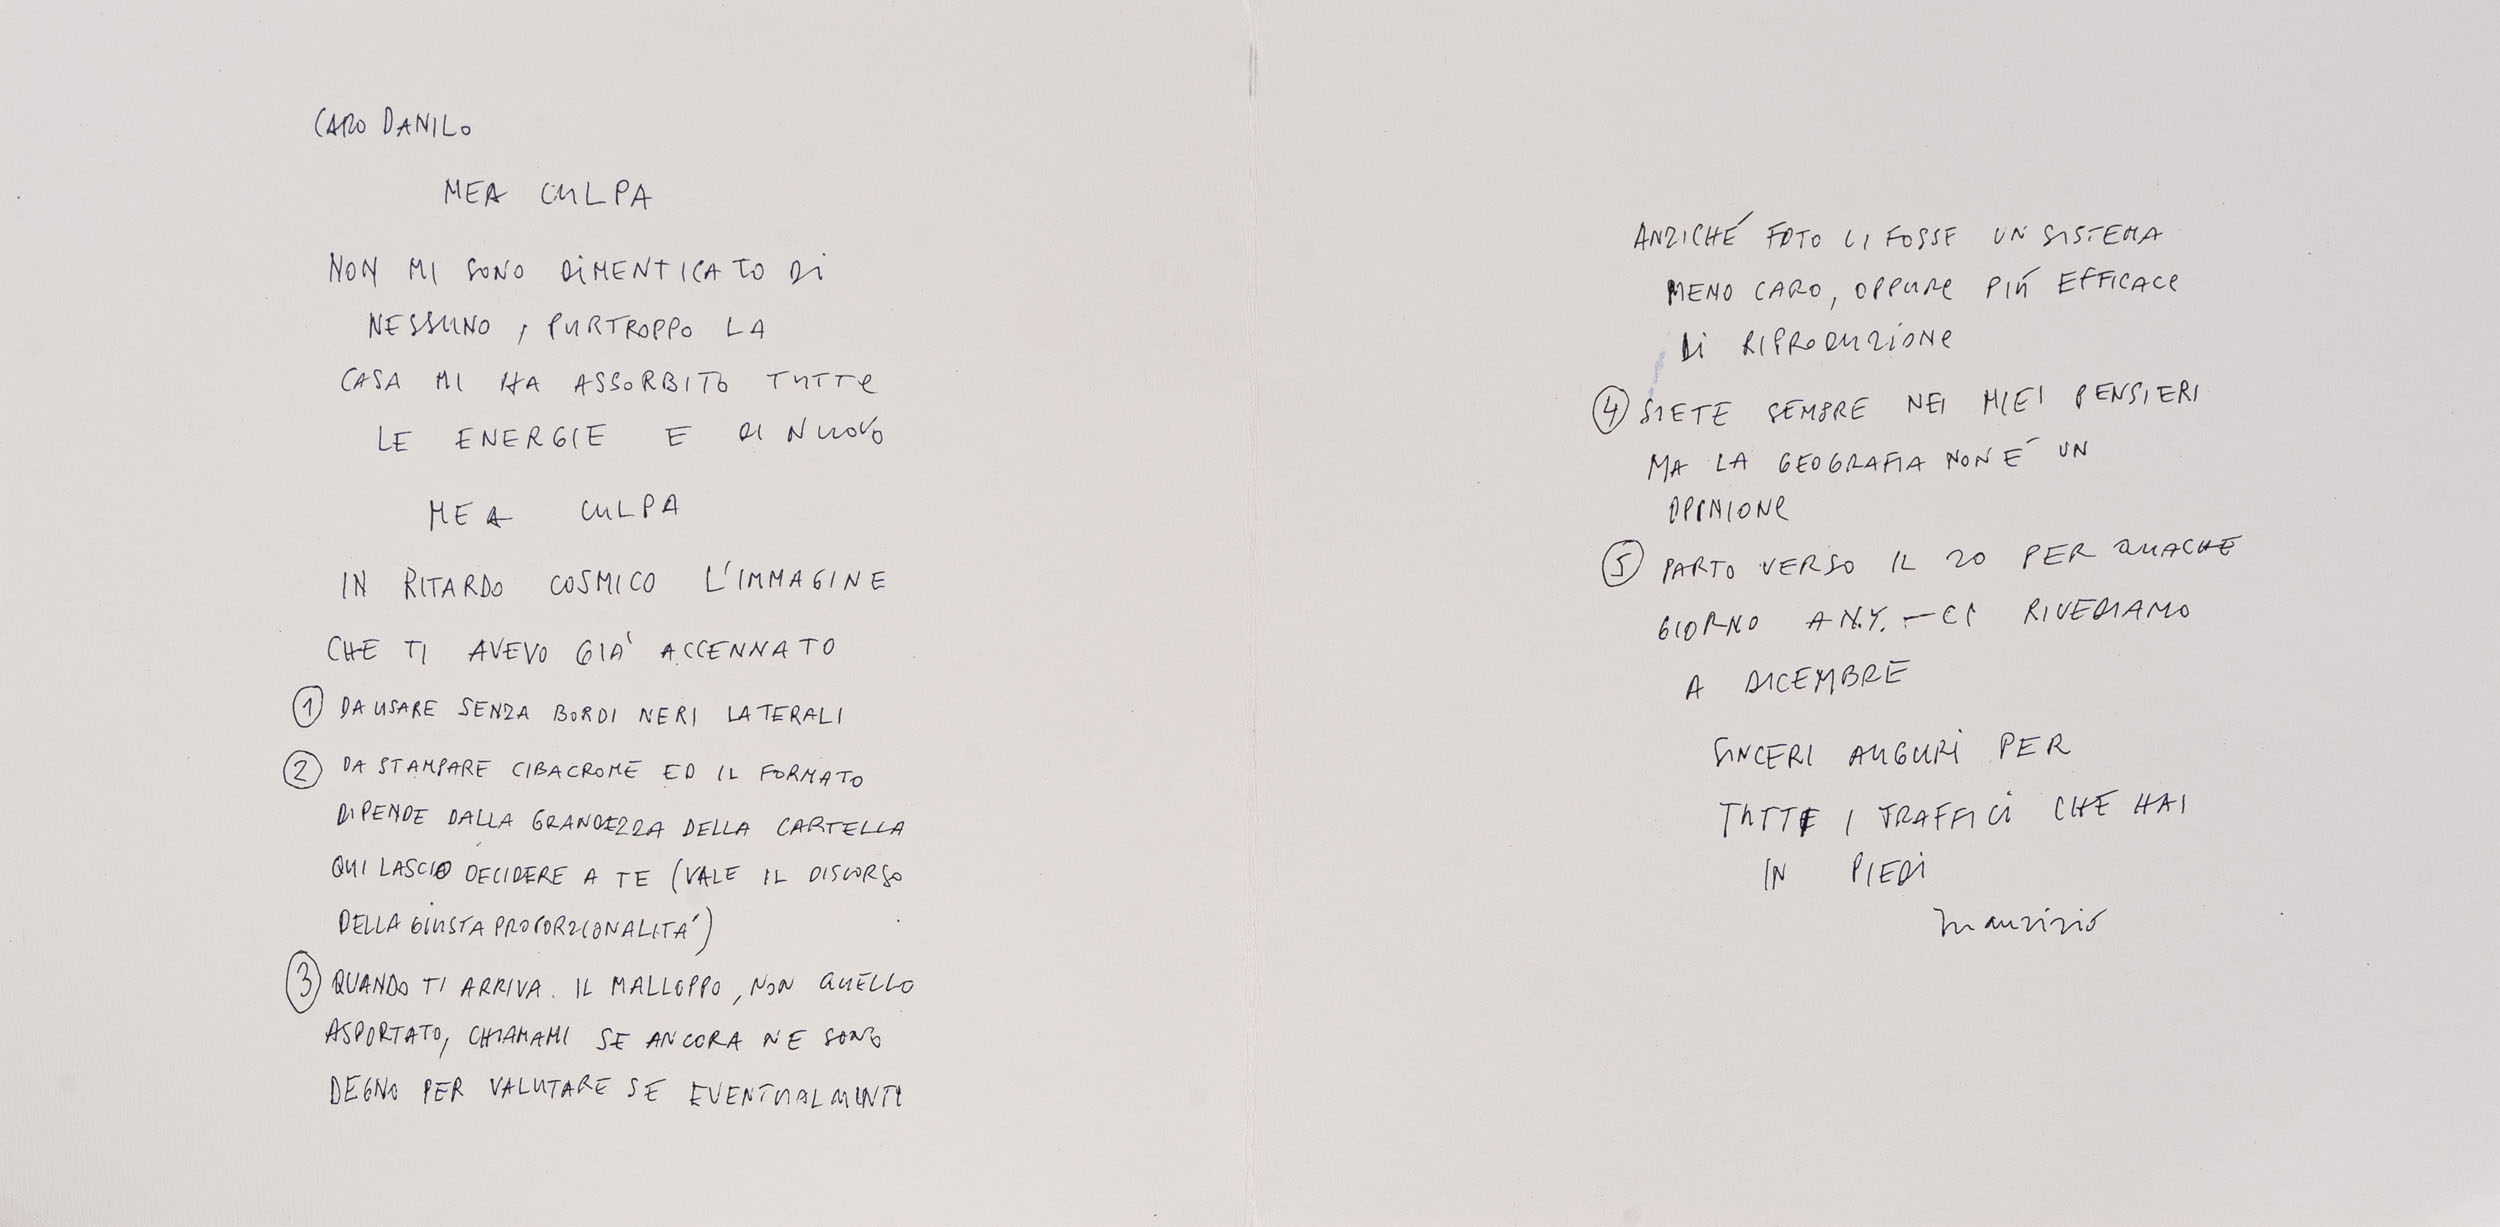 CARO DANILO
MEA CULPA
NON MI SONO DIMENTICATO DI
NESSUNO, PURTROPPO LA
CASA MI HA ASSORBITO TUTTE
LE ENERGIE E DI NUOVO
MEA CULPA
IN RITARDO COSMICO L'IMMAGINE
CHE TI AVEVO GIA' ACCENNATO
1 DA USARE SENZA BORDI NERI LATERALI
2 DA STAMPARE CIBACROME ED IL FORMATO
DIPENDE DALLA GRANDEZZA DELLA CARTELLA
QUI LASCIO DECIDERE A TE (VALE IL DISCORSO
DELLA GIUSTA PROPORZIONALITA')
3 QUANDO TI ARRIVA. IL MALLOPPO, NON QUELLO
ASPORTATO, CHIAMAMI SE ANCORA NE SONO
DEGNO PER VALUTARE SE EVENTUALMENTE
ANZICHÉ FOTO CI FOSSE UN SISTEMA
MENO CARO, OPPURE PIÚ EFFICACE
DI RIPRODUZIONE
4 SIETE SEMPRE NEI MIEI PENSIERI
MA LA GEOGRAFIA NON É UN
OPINIONE
5 PARTO VERSO IL 20 PER QUACHE
GIORNO A N.Y. – CI RIVEDIAMO
A DICEMBRE
SINCERI AUGURI PER
TUTTI I TRAFFICI CHE HAI
IN PIEDI
Maurizio